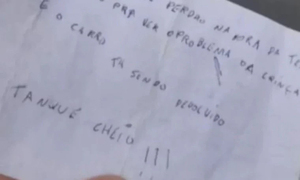 PERDAO NA HORA DA TE
PRA VER O PROBLEMA DA CRIANÇA
E O CARRO
TA SENDO DEVOLVIDO
TANQUE CHEIO !!!